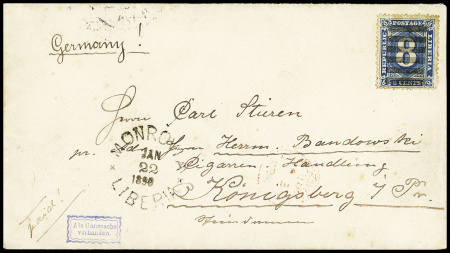 Germany!
REPUBLIC POSTAGE LIBERIA
8
8 CENTS
Herrn Carl Stieren
pr. Ad. Herrn Herrm. Bandowski
Cigarren Handlung
Königsberg i/Pr.
MONROVIA
JAN
22
LIBERIA
Als Ganzsache
vorhanden.